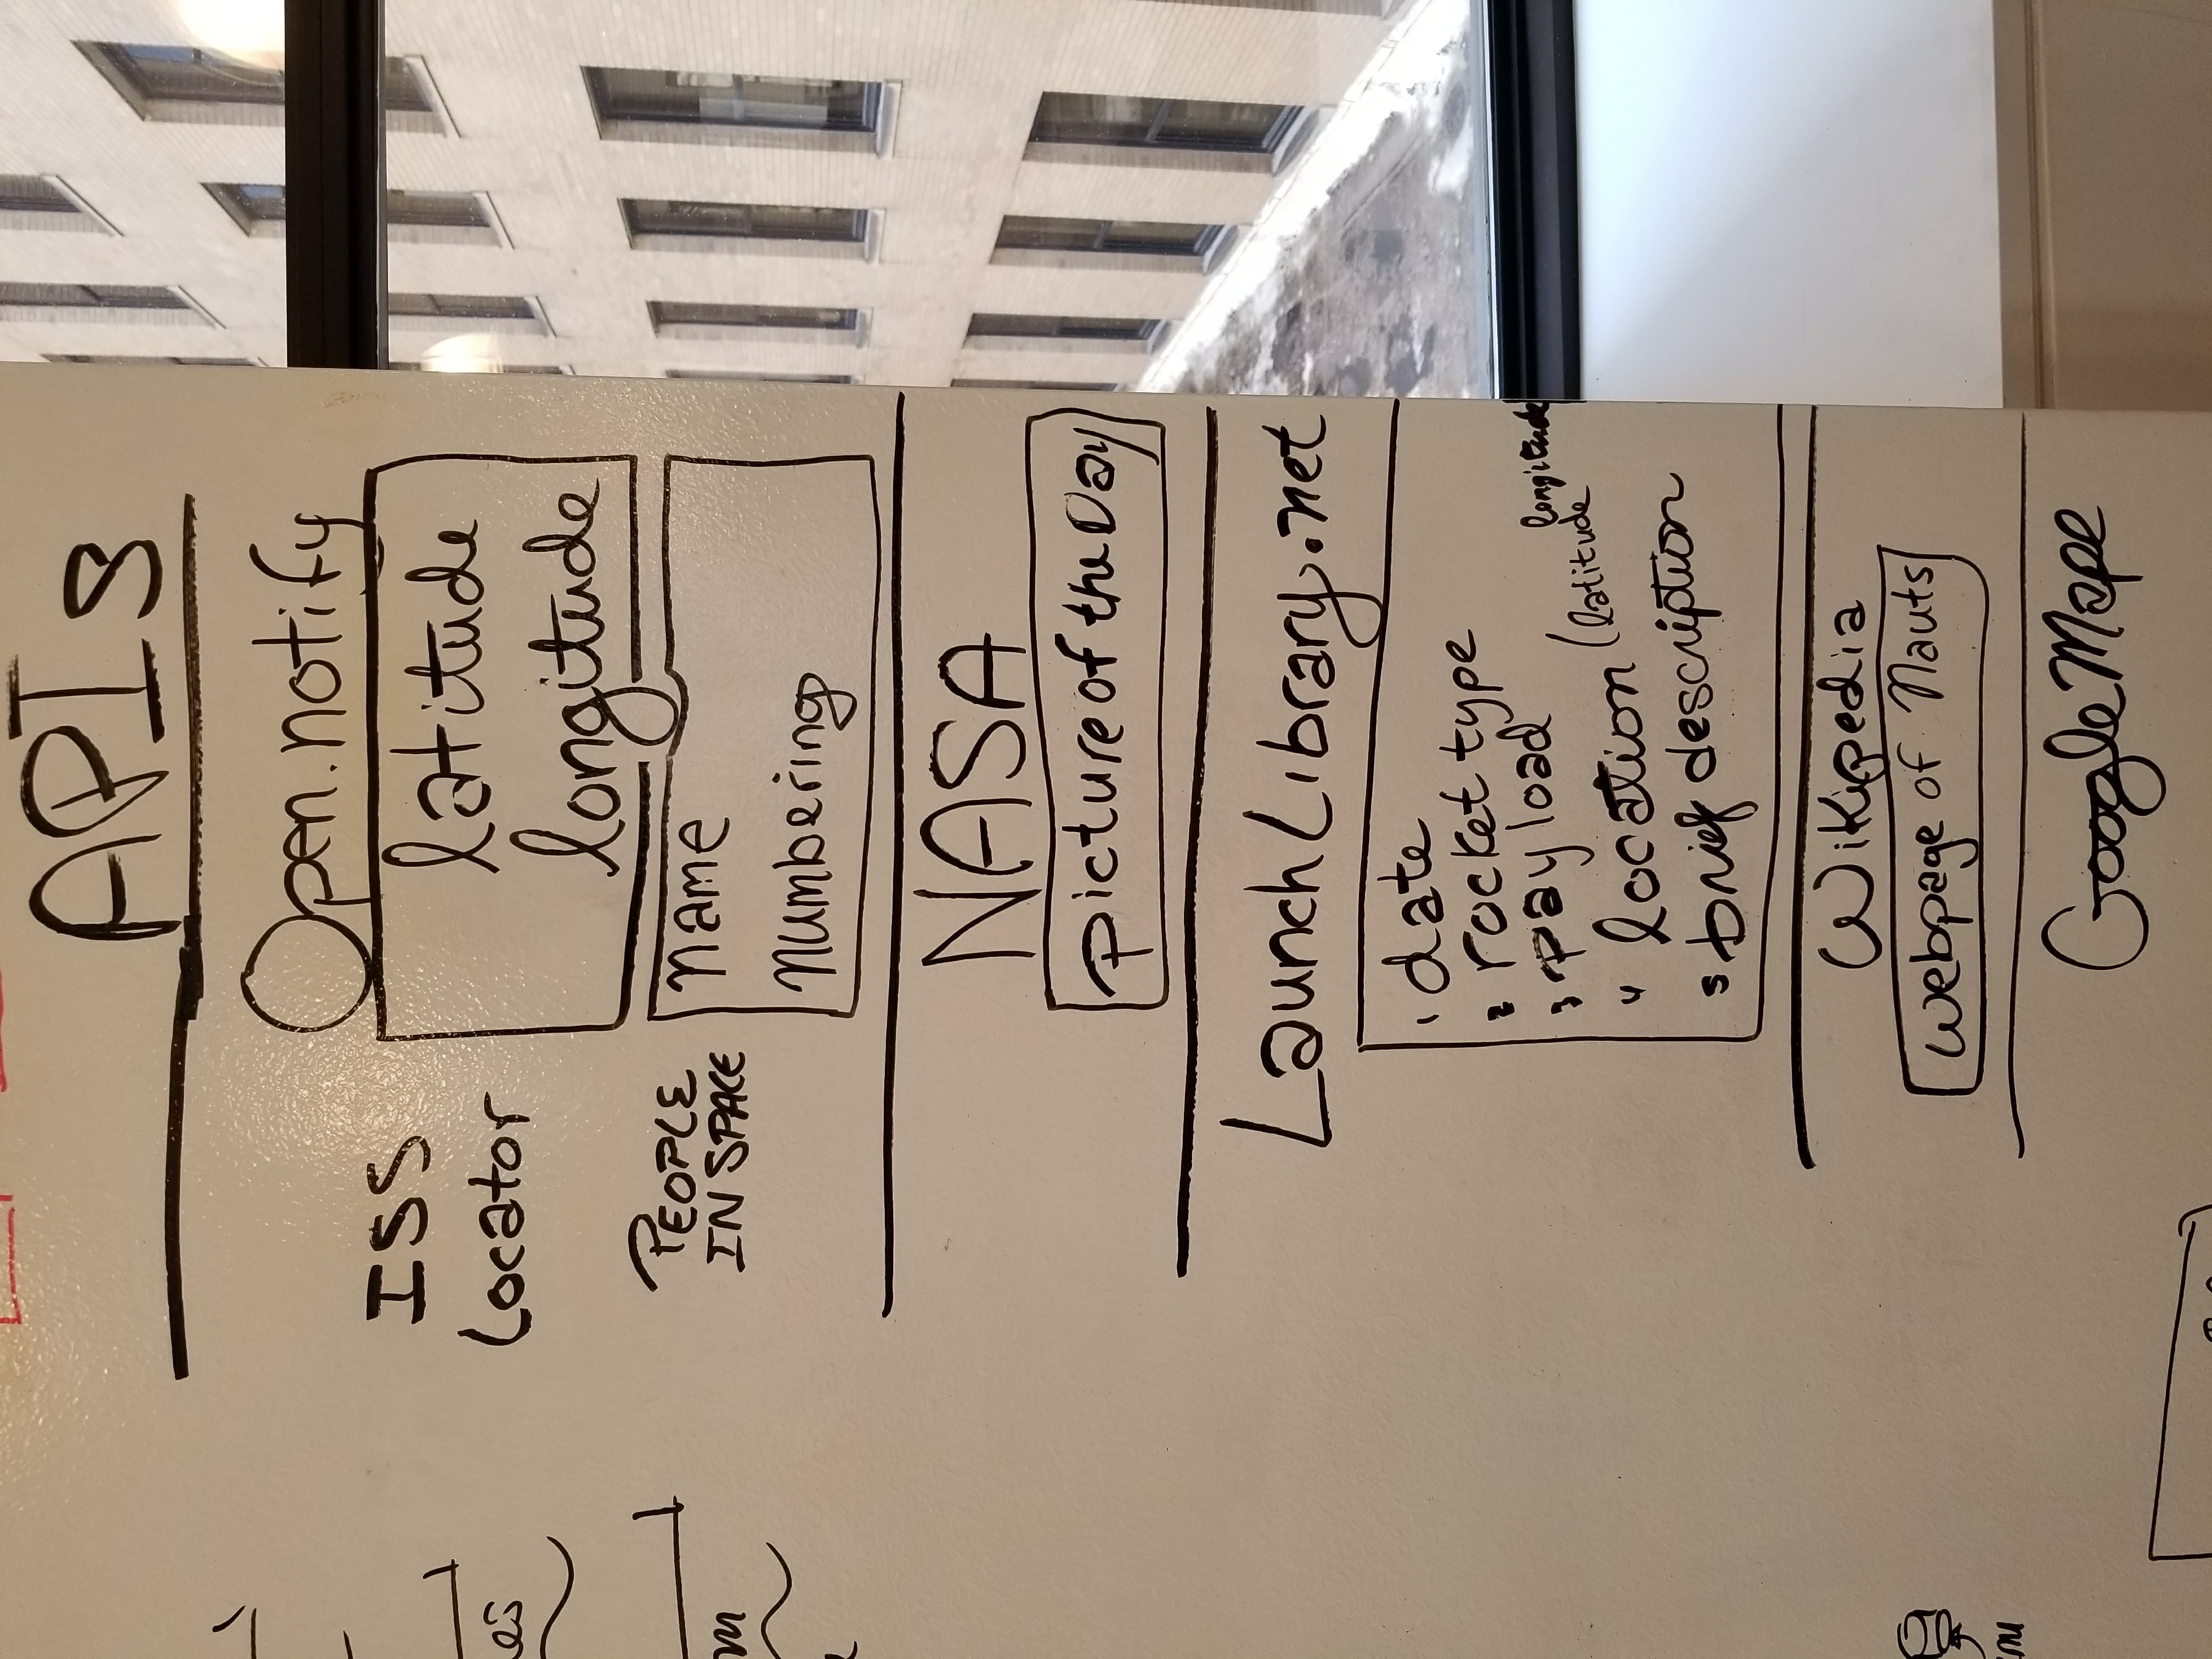 APIs
Open.notify
ISS
Locator
latitude
longitude
PEOPLE
IN SPACE
name
numbering
NASA
picture of the Day
LaunchLibrary.net
1 date
2 rocket type
3 payload
longitude
4 location (latitude
5 brief description
Wikipedia
webpage of Nauts
Google Maps